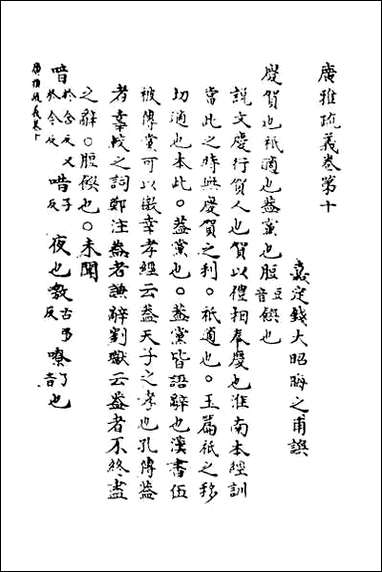 廣雅疏義卷第十
嘉定錢大昭晦之甫譔
慶賀也祇適也葢黨也脰音豆饌也
說文慶行賀人也賀以禮相奉慶也淮南本經訓
當此之時無慶賀之利〇祇適也〇玉篇祇之移
切適也本此〇葢黨也〇葢黨皆語辭也漢書伍
被傳黨可以徼幸孝經云葢天子之孝也孔傳葢
者辜較之詞鄭注葢者謙辭劉瓛云葢者不終盡
之辭〇脰也〇未聞
喑於含反又於今反唶子反夜也古弔反嘹了音也
廣雅疏義卷十